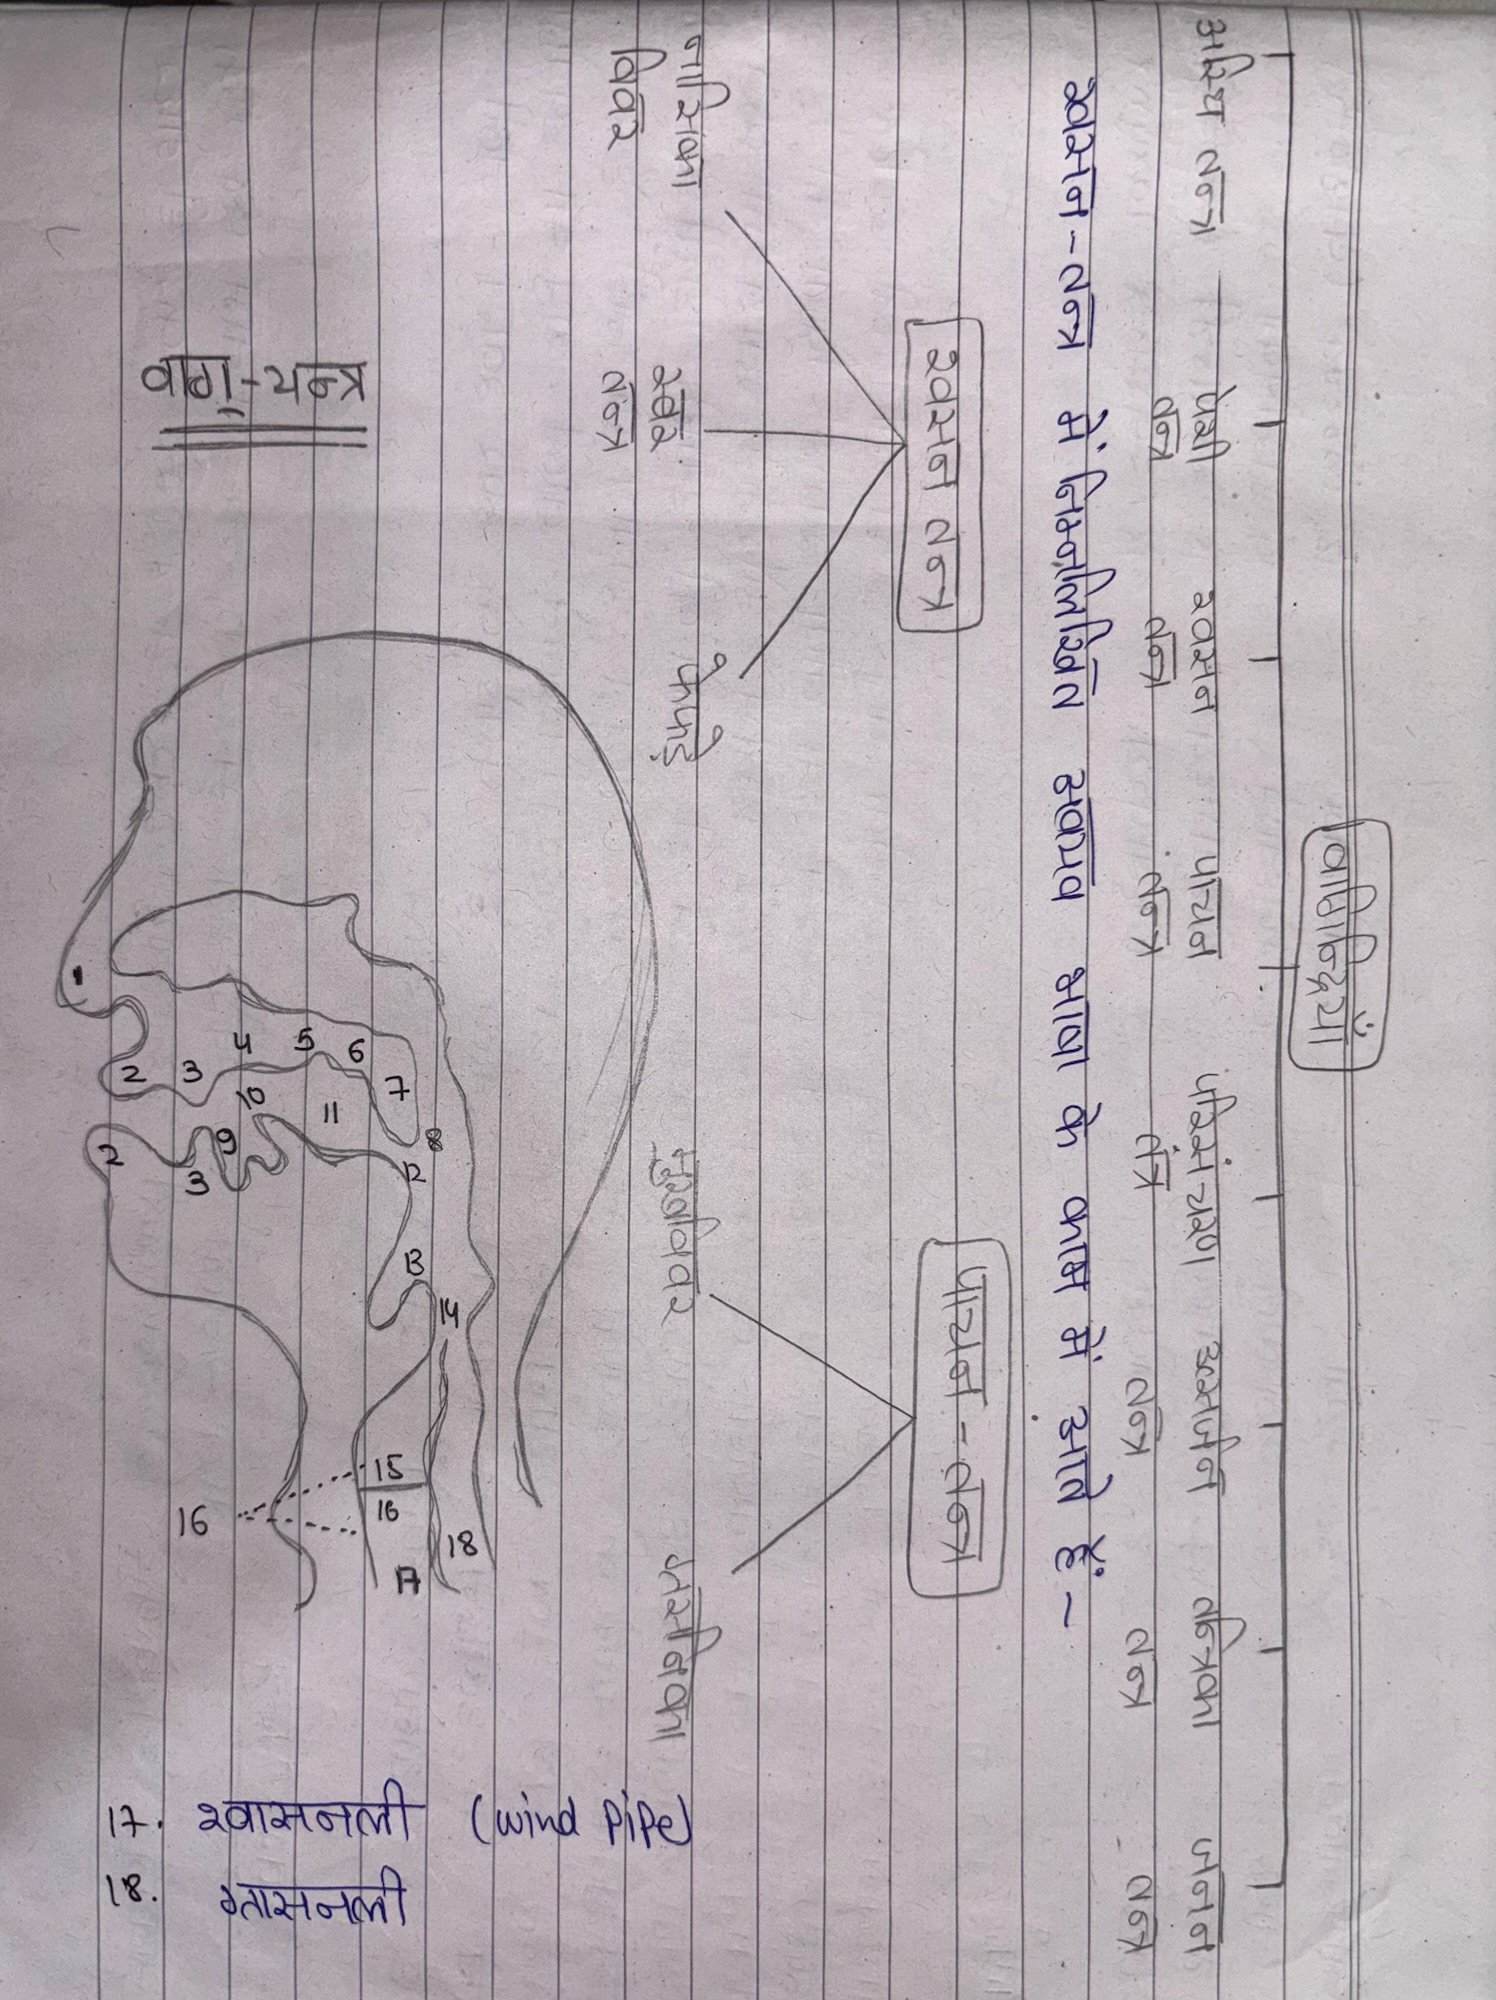 वागिन्द्रियाँ
अस्थि तन्त्र
पेशी तन्त्र
श्वसन तन्त्र
पाचन तन्त्र
परिसंचरण तंत्र
उत्सर्जन तन्त्र
तन्त्रिका तन्त्र
जनन तन्त्र
श्वसन-तन्त्र में निम्नलिखित अवयव भाषा के काम में आते हैं -
श्वसन तन्त्र
नासिका विवर
स्वर तंन्त्र
फेफड़े
पाचन-तन्त्र
मुखविवर
ग्रसनिका
वाग्-यन्त्र
1
2
3
4
5
6
7
8
2
3
9
10
11
12
13
14
15
16
16
17
18
17. श्वासनली (wind pipe)
18. ग्रासनली